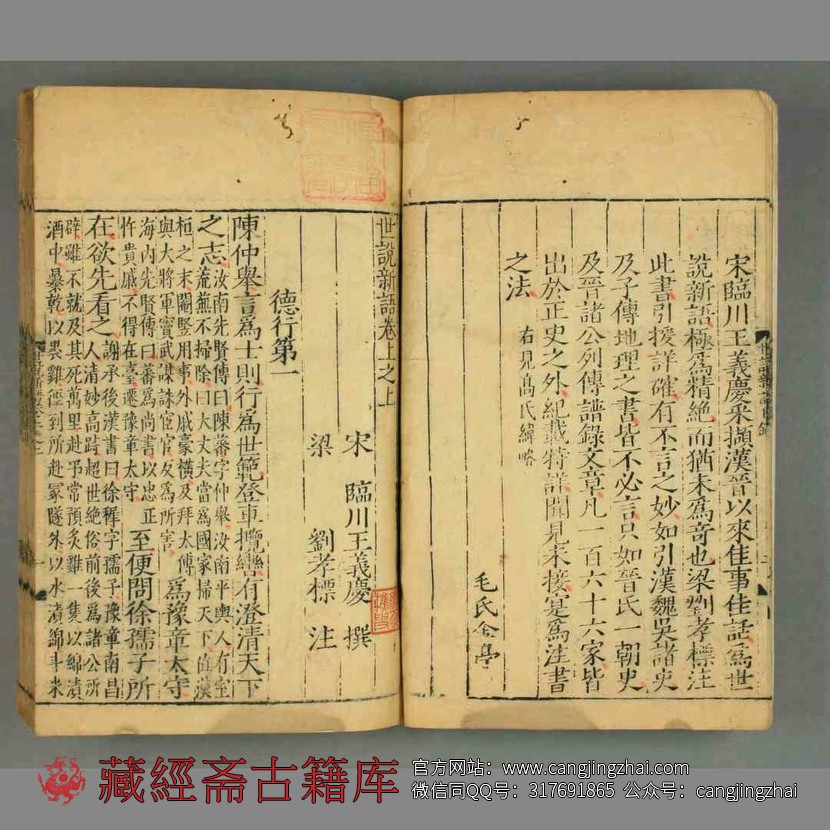 宋臨川王義慶采擷漢晉以來佳事佳話爲世
說新語極爲精絶而猶未爲奇也梁劉孝標注
此書引援詳確有不言之妙如引漢魏吳諸史
及子傳地理之書皆不必言只如晉氏一朝史
及晉諸公列傳譜錄文章凡一百六十六家皆
出於正史之外紀載特詳聞見未接寔爲注書
之法 右見高氏緯略
毛氏金亭
世說新語卷上之上
宋 臨川王義慶 撰
梁 劉孝標 注
德行第一
陳仲舉言爲士則行爲世範登車攬轡有澄清天下
之志 汝南先賢傳曰陳蕃字仲舉汝南平輿人有室
荒蕪不掃除曰大丈夫當爲國家掃天下值漢
桓之末閹豎用事外戚豪橫及拜太傅
與大將軍竇武謀誅宦官反爲所害 爲豫章太守
海内先賢傳曰蕃爲尚書以忠正
忤貴戚不得在臺遷豫章太守 至便問徐孺子所
在欲先看之 謝承後漢書曰徐穉字孺子豫章南昌
人清妙高跱超世絶俗前後爲諸公所
辟雖不就及其死萬里赴弔常預炙雞一隻以綿漬
酒中暴乾以裹雞徑到所赴冢隧外以水漬綿斗米
藏經斋古籍库
官方网站：www.cangjingzhai.com
微信同QQ号：317691865 公众号：cangjingzhai